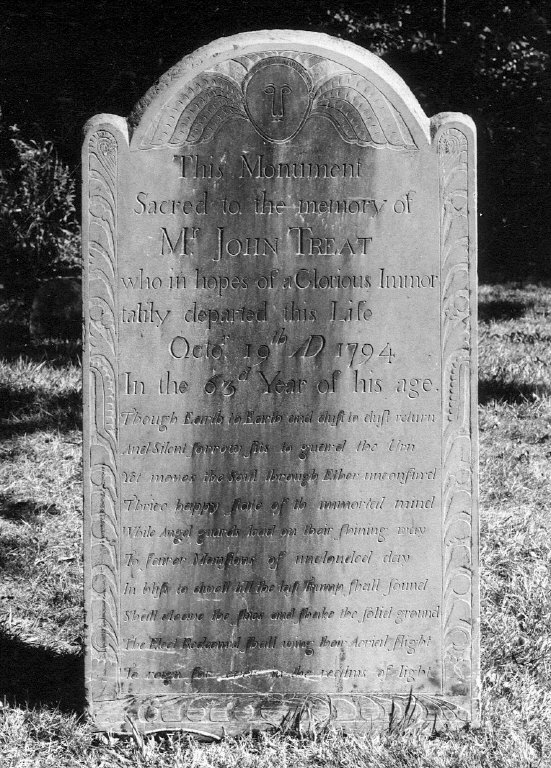 This Monument
Sacred to the memory of
Mr John Treat
who in hopes of a Glorious Immor
tality departed this Life
Octor 19th AD 1794
In the 63rd Year of his age.
Though Earth to Earth and dust to dust return
And Silent sorrow sits to guard the Urn
Yet moves the Soul through Ether unconfin'd
Thrice happy state of th immortal mind
While Angel guards tend on their shining way
To fairer Mansions of unclouded day
In bliss to dwell till the last Trump shall sound
Shall cleave the skies and shake the solid ground
The Elect Redeem'd shall wing their Aerial flight
To reign for ever in the realms of light